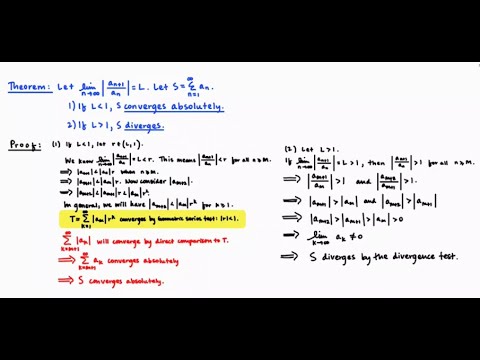 Theorem: Let lim n→∞ |a_{n+1}/a_n| = L. Let S = ∑_{n=1}^{∞} a_n.
1) If L<1, S converges absolutely.
2) If L>1, S diverges.
Proof: (1) If L<1, let r∈(L,1).
We know lim n→∞ |a_{n+1}/a_n| = L < r. This means |a_{n+1}/a_n| < r for all n≥m.
⟹ |a_{n+1}| < |a_n| r when n≥m.
⟹ |a_{m+1}| < |a_m| r. Now consider |a_{m+2}|.
⟹ |a_{m+2}| < |a_{m+1}| r < |a_m| r².
In general, we will have |a_{m+k}| < |a_m| r^k for k≥1.
T = ∑_{k=1}^{∞} |a_m| r^k converges by Geometric series test: |r|<1.
∑_{k=m+1}^{∞} |a_k| will converge by direct comparison to T.
⟹ ∑_{k=m+1}^{∞} a_k converges absolutely
⟹ S converges absolutely.
(2) Let L>1.
If lim n→∞ |a_{n+1}/a_n| = L > 1, then |a_{n+1}/a_n| > 1 for all n≥m.
⟹ |a_{m+1}/a_m| > 1 and |a_{m+2}/a_{m+1}| > 1.
⟹ |a_{m+1}| > |a_m| and |a_{m+2}| > |a_{m+1}|
⟹ |a_{m+2}| > |a_{m+1}| > |a_m| > 0
⟹ lim k→∞ a_k ≠ 0
⟹ S diverges by the divergence test.